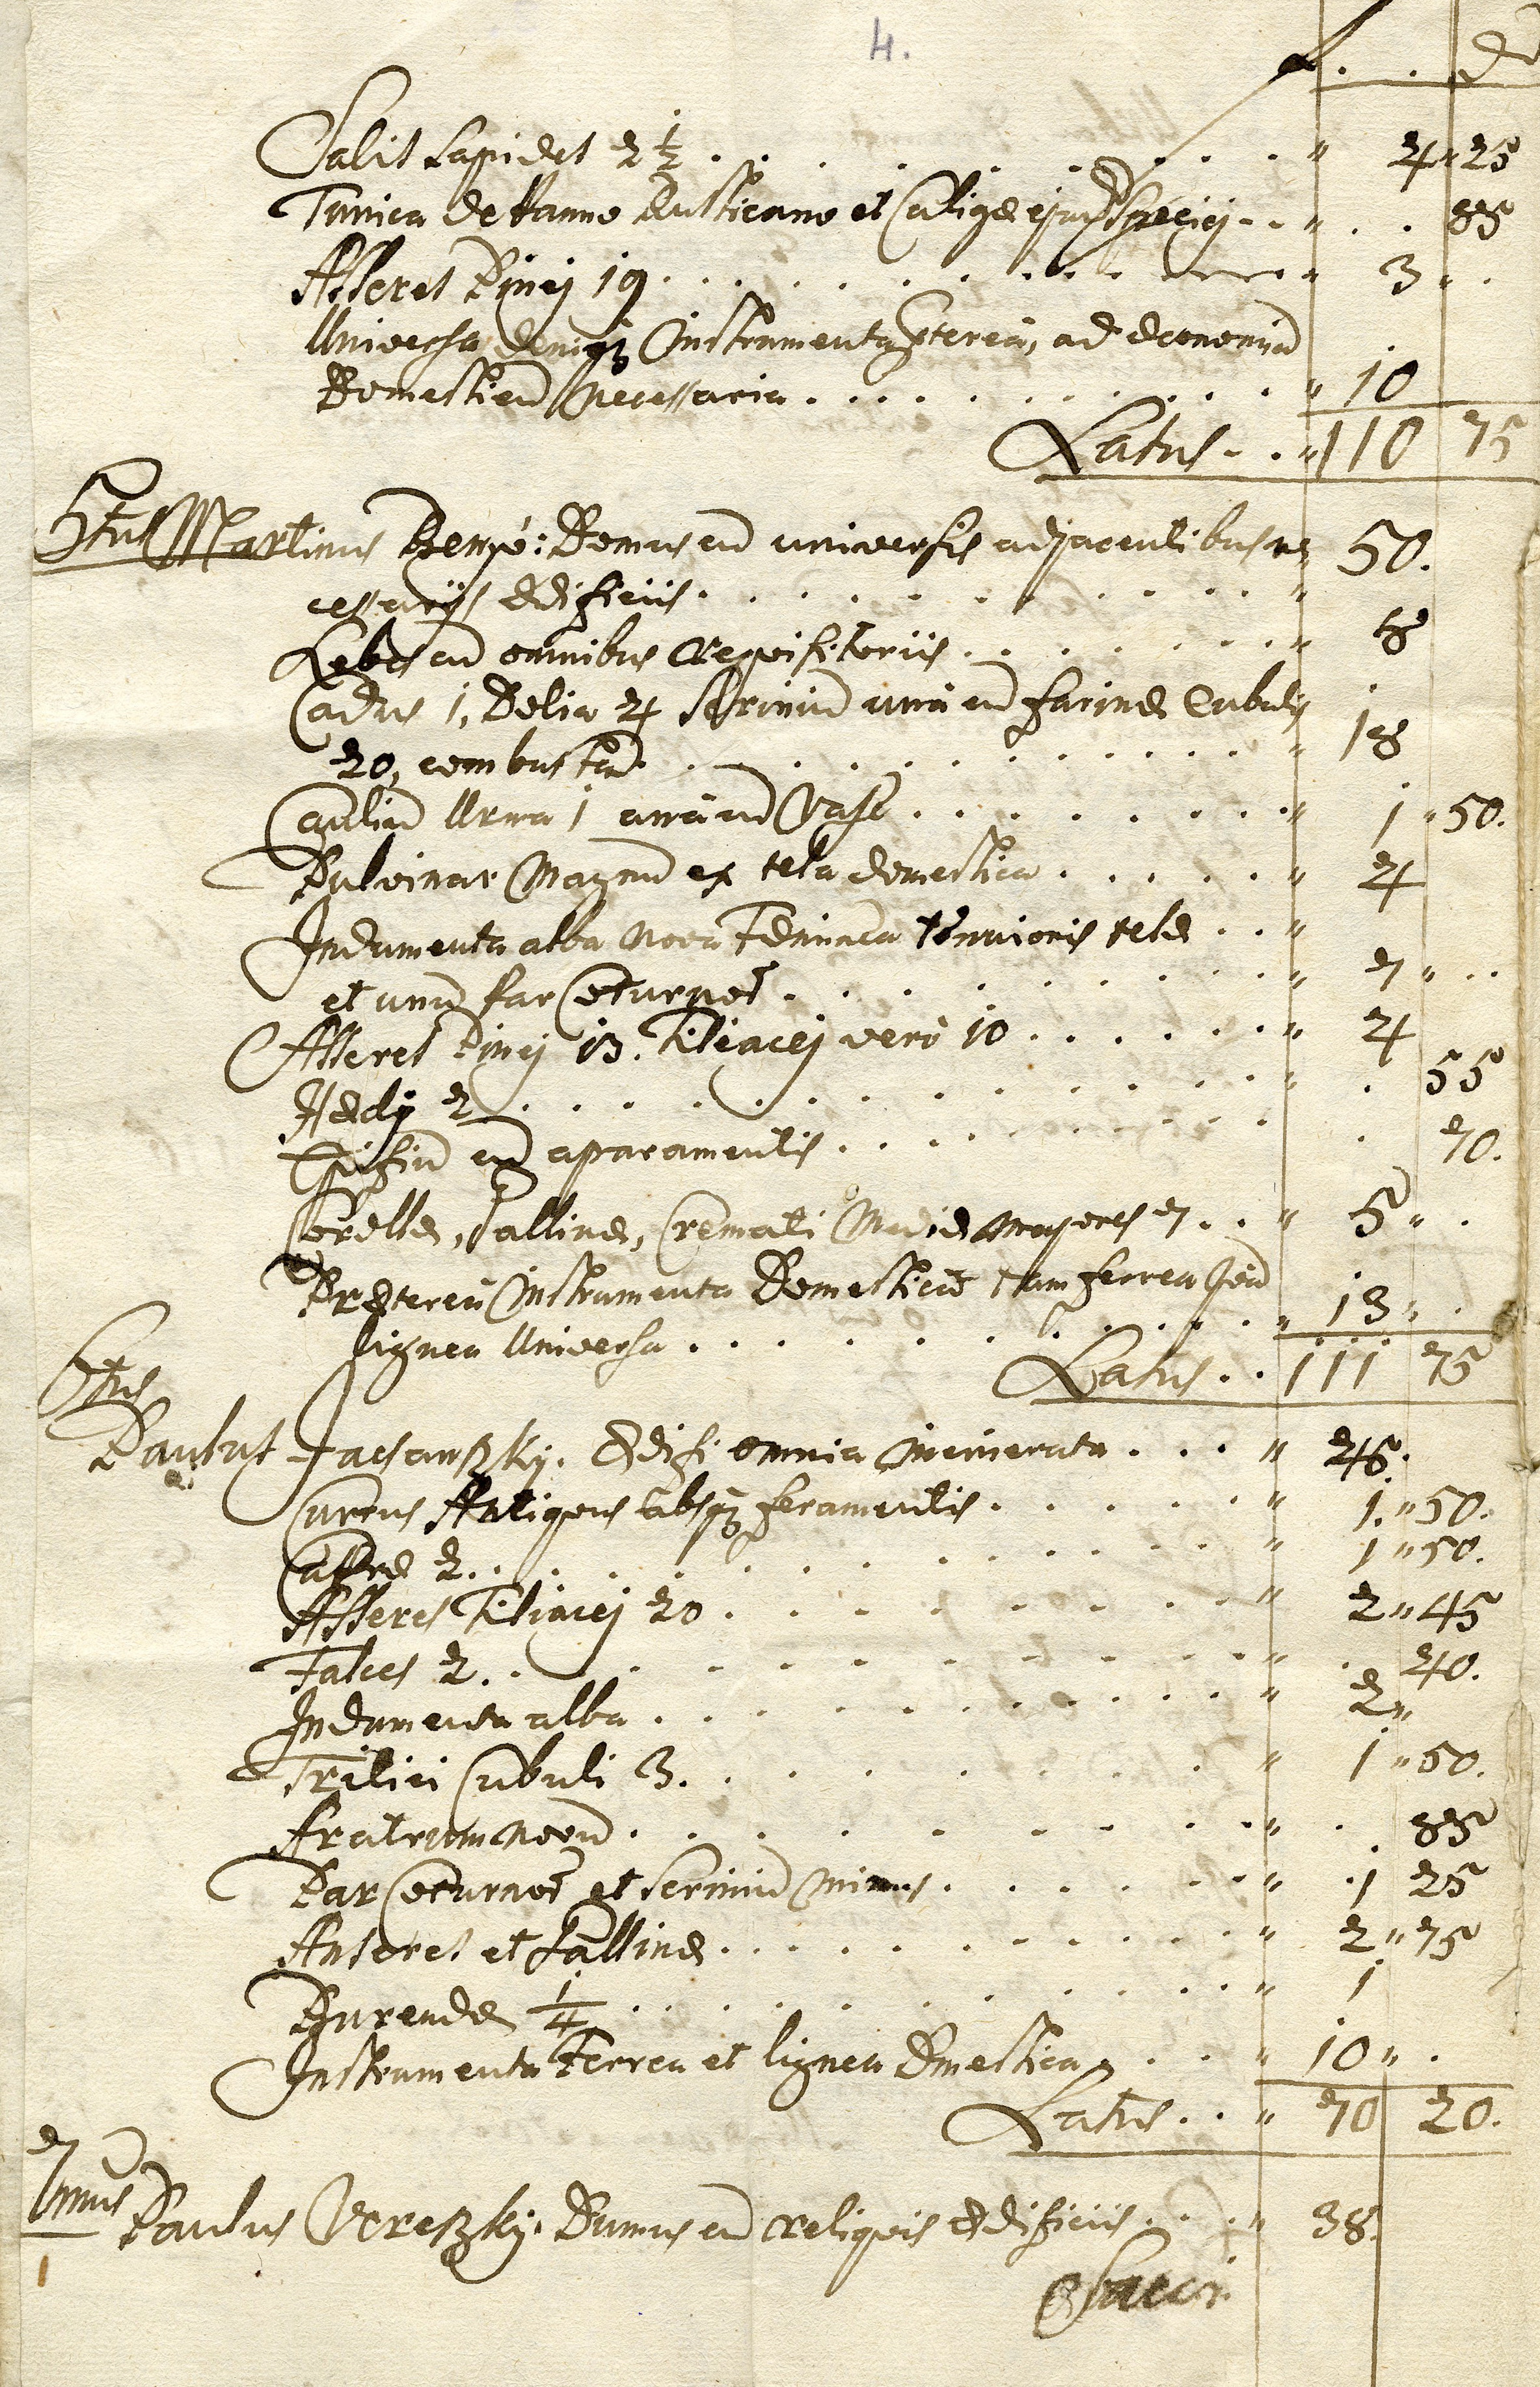 4.
f. . . d
Salis Lapides 2 1/2 . . . . . . . . " 4 " 25
Tunica de Panno Rusticano et Caligæ ejusd Speciei . . " . . 85
Asseres Pinei 19 . . . . . . . . " 3 " .
Universa deniqz Instrumenta ptereà, ad Economiã
Domesticã Necessaria . . . . . . . . " 10
Latus . . " 110 75
5tus Martinus : Domus cũ universis adjacentibus ne
cessarijs Ædificiis . . . . . . . . " 50.
Lebes cũ omnibus Reqvisitoriis . . . . . . . "
Cadus 1, Dolia 4 Scriniũ unà cũ farinæ Cubulis
20, combustũ . . . . . . . . " 18
Caulium Urna 1 unà cũ Vase . . . . . . . . " 1 " 50.
Pulvinar Magnũ ex tela domestica . . . . . " 4
Indumenta alba Nova Fæminea tenuioris telæ . . "
et unũ par Coturnoꝝ . . . . . . . . " 7 " . .
Asseres Pinei 13. Tiliacei verò 10 . . . . . . " 4
Hædi 2 . . . . . . . . " . 55
cũ aparamentis . . . . . . . . . 70.
Gallinæ, Cremati Mediæ majores 7 . . " 5 " .
Prætereà Instrumenta Domestica tam ferrea qvã
lignea Universa . . . . . . . . " 13 " .
Latus . . 111 75
6tus
Paulus Jacsanszky. Ædifi omnia Incinerata . . . " 46.
Currus Antiqvus absqz feramentis . . . . . " 1. " 50.
Capræ 2 . . . . . . . . " 1 " 50.
Asseres Tiliacei 20 . . . . . . . " 2 " 45
Falces 2 . . . . . . . . " . 40.
Indumenta alba . . . . . . . . " 2 "
Tritici Cubuli 3. . . . . . . . " 1 " 50.
Aratrum Novũ . . . . . . . . " . 85
Par Coturnoꝝ et Scriniũ Minus . . . . . . " 1 25
Anseres et Gallinæ . . . . . . . . " 2 " 75
1/4 . . . . . . . . " 1
Instrumenta Ferrea et lignea Dmestica . . " 10 " .
Latus . . " 70 20.
7
imus Paulus Vereszky. Dumus cũ reliqvis Ædificiis . . . " 38.
1